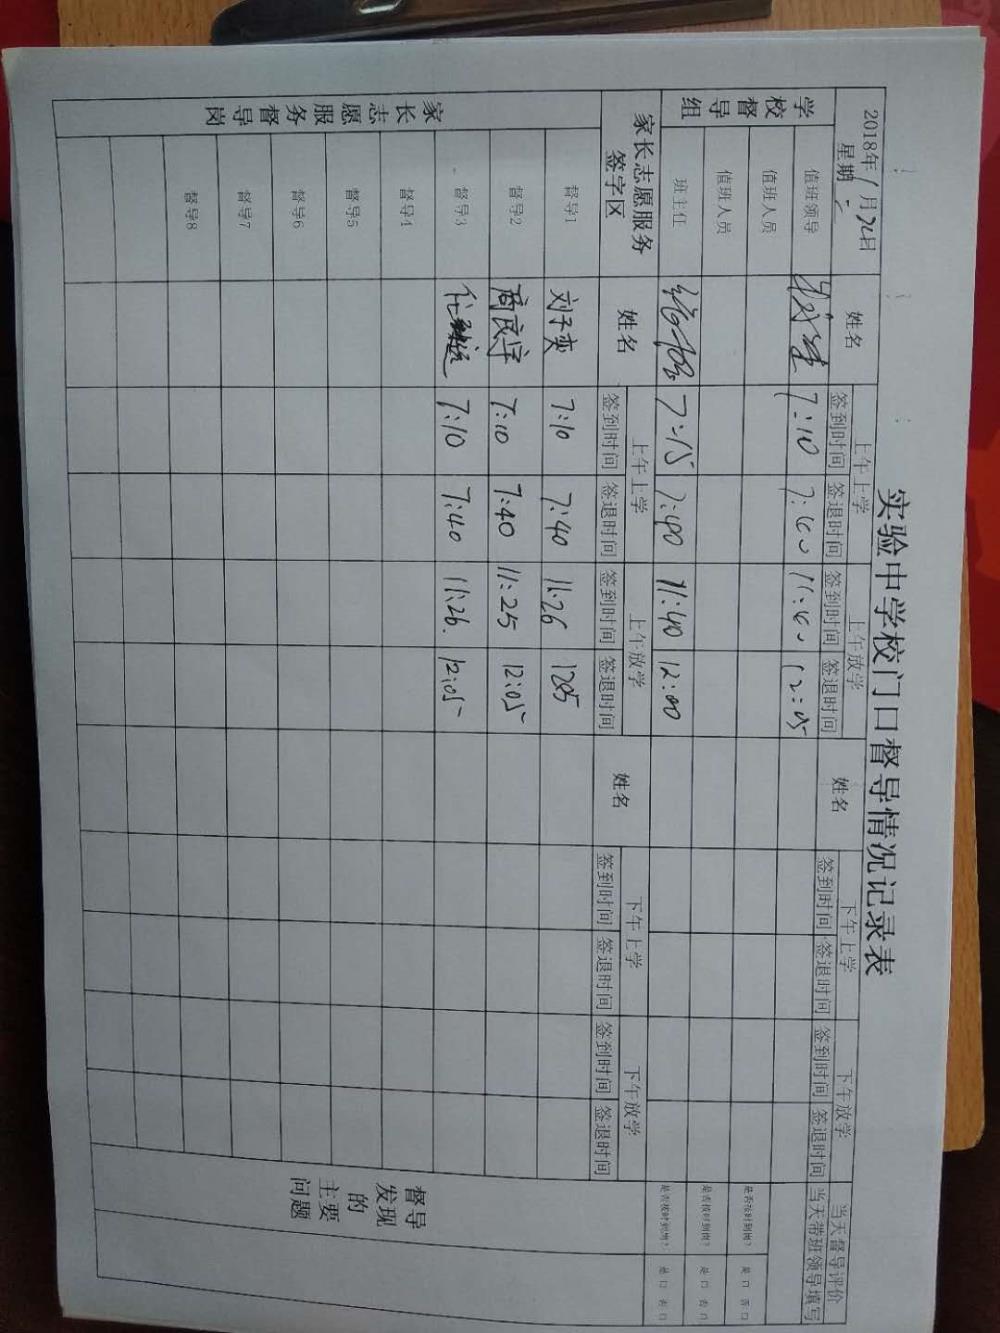 实验中学校门口督导情况记录表
2018年1月 日 姓名 上午上学 上午放学 姓名 下午上学 下午放学 当天督导评价
星期二 签到时间 签退时间 签到时间 签退时间 签到时间 签退时间 签到时间 签退时间 当天带班领导填写
学校督导组
值班领导 7:10 7:40 11:40 12:05
值班人员 是否按时到岗? 是口 否口
值班人员 是否按时到岗? 是口 否口
班主任 7:15 7:40 11:40 12:00 是否按时到岗? 是口 否口
家长志愿服务 姓名 上午上学 上午放学 姓名 下午上学 下午放学
签字区 签到时间 签退时间 签到时间 签退时间 签到时间 签退时间 签到时间 签退时间
家长志愿服务督导岗
督导1 刘子奕 7:10 7:40 11:26 1205
督导2 商良宇 7:10 7:40 11:25 12:05
督导3 7:10 7:40 11:26. 12:05
督导4
督导5
督导6
督导7
督导8
督导
发现
的
主要
问题